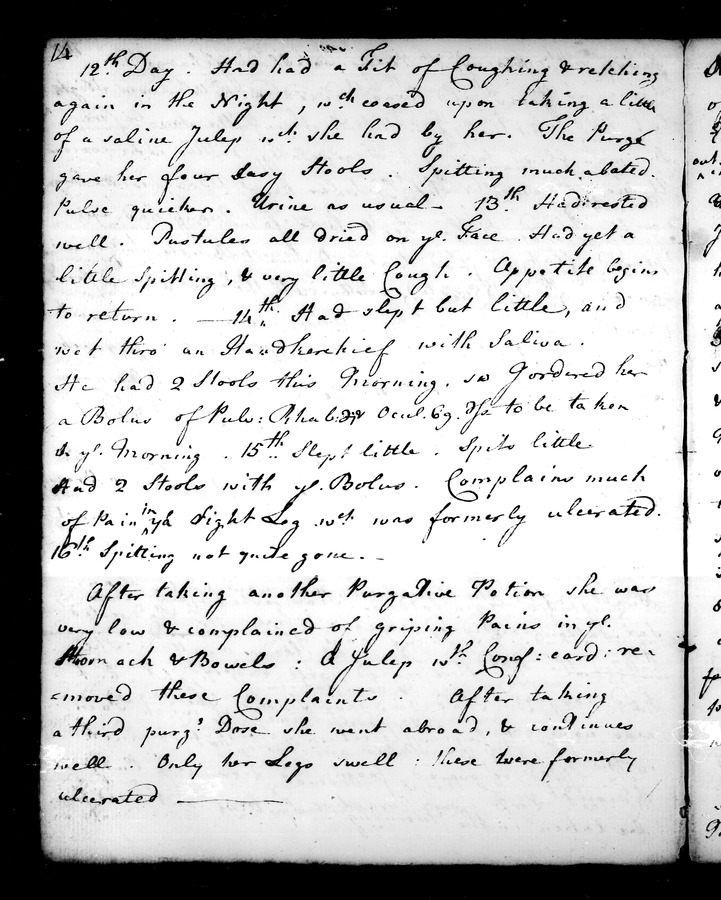 14
12th Day. Had had a Fit of Coughing & retching
again in the Night, wch ceased upon taking a little
of a saline Julep wch she had by her. The Purge
gave her four easy Stools. Spitting much abated.
Pulse quicker. Urine as usual — 13th Had rested
well. Pustules all dried on ye. Face. Had yet a
little Spitting, & very little Cough. Appetite begins
to return. — 14th Had slept but little, and
wet thro' an Handkerchief with Saliva.
He had 2 Stools this Morning. so I ordered her
a Bolus of Pulv: Rhab: & Ocul. 69. to be taken
ye. Morning. 15th Slept little. Spits little
Had 2 Stools with ye. Bolus. Complains much
of Pain in ye right Leg wch was formerly ulcerated.
16th Spitting not quite gone. —
After taking another Purgative Potion she was
very low & complained of griping Pains in ye.
Stomach & Bowels: A Julep wth Conf: card: re-
=moved these Complaints. After taking
a third purg: Dose she went abroad, & continues
well. Only her Legs swell: these were formerly
ulcerated —